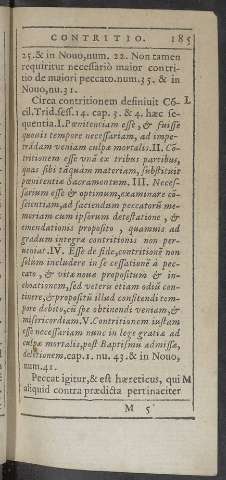 CONTRITIO. 185
25. & in Nouo, num. 22. Non tamen
requiritur necessariò maior contri-
tio de maiori peccato. num. 35. & in
Nouo, nu. 31.
Circa contritionem definiuit Cõ- L
cil. Trid. sess. 14. cap. 3. & 4. hæc se-
quentia. I. Pœnitentiam esse, & fuisse
quouis tempore necessariam, ad impe-
trãdam veniam culpæ mortalis. II. Con-
tritionem esse vnã ex tribus partibus,
quas sibi tãquam materiam, substituit
pœnitentiæ Sacramentum. III. Neces-
sarium esse & optimum, examinare cõ-
scientiam, ad faciendum peccatorũ me-
moriam cum ipsorum detestatione, &
emendationis proposito, quamuis ad
gradum integræ contritionis non per-
ueniat. IV. Esse de fide, contritionẽ non
solùm includere in se cessationẽ à pec-
cato, & vitæ nouæ propositum & in-
choationem, sed veteris etiam odiũ con-
tinere, & propositũ illud consitendi tem-
pore debito, cũ spe obtinendi veniam, &
misericordiam. V. Contritionem iustam
esse necessariam nunc in lege gratiæ ad
culpæ mortalis, post Baptismũ admissæ,
deletionem. cap. 1. nu. 43. & in Nouo,
num. 41.
Peccat igitur, & est hæreticus, qui M
aliquid contra prædicta pertinaciter
M 5